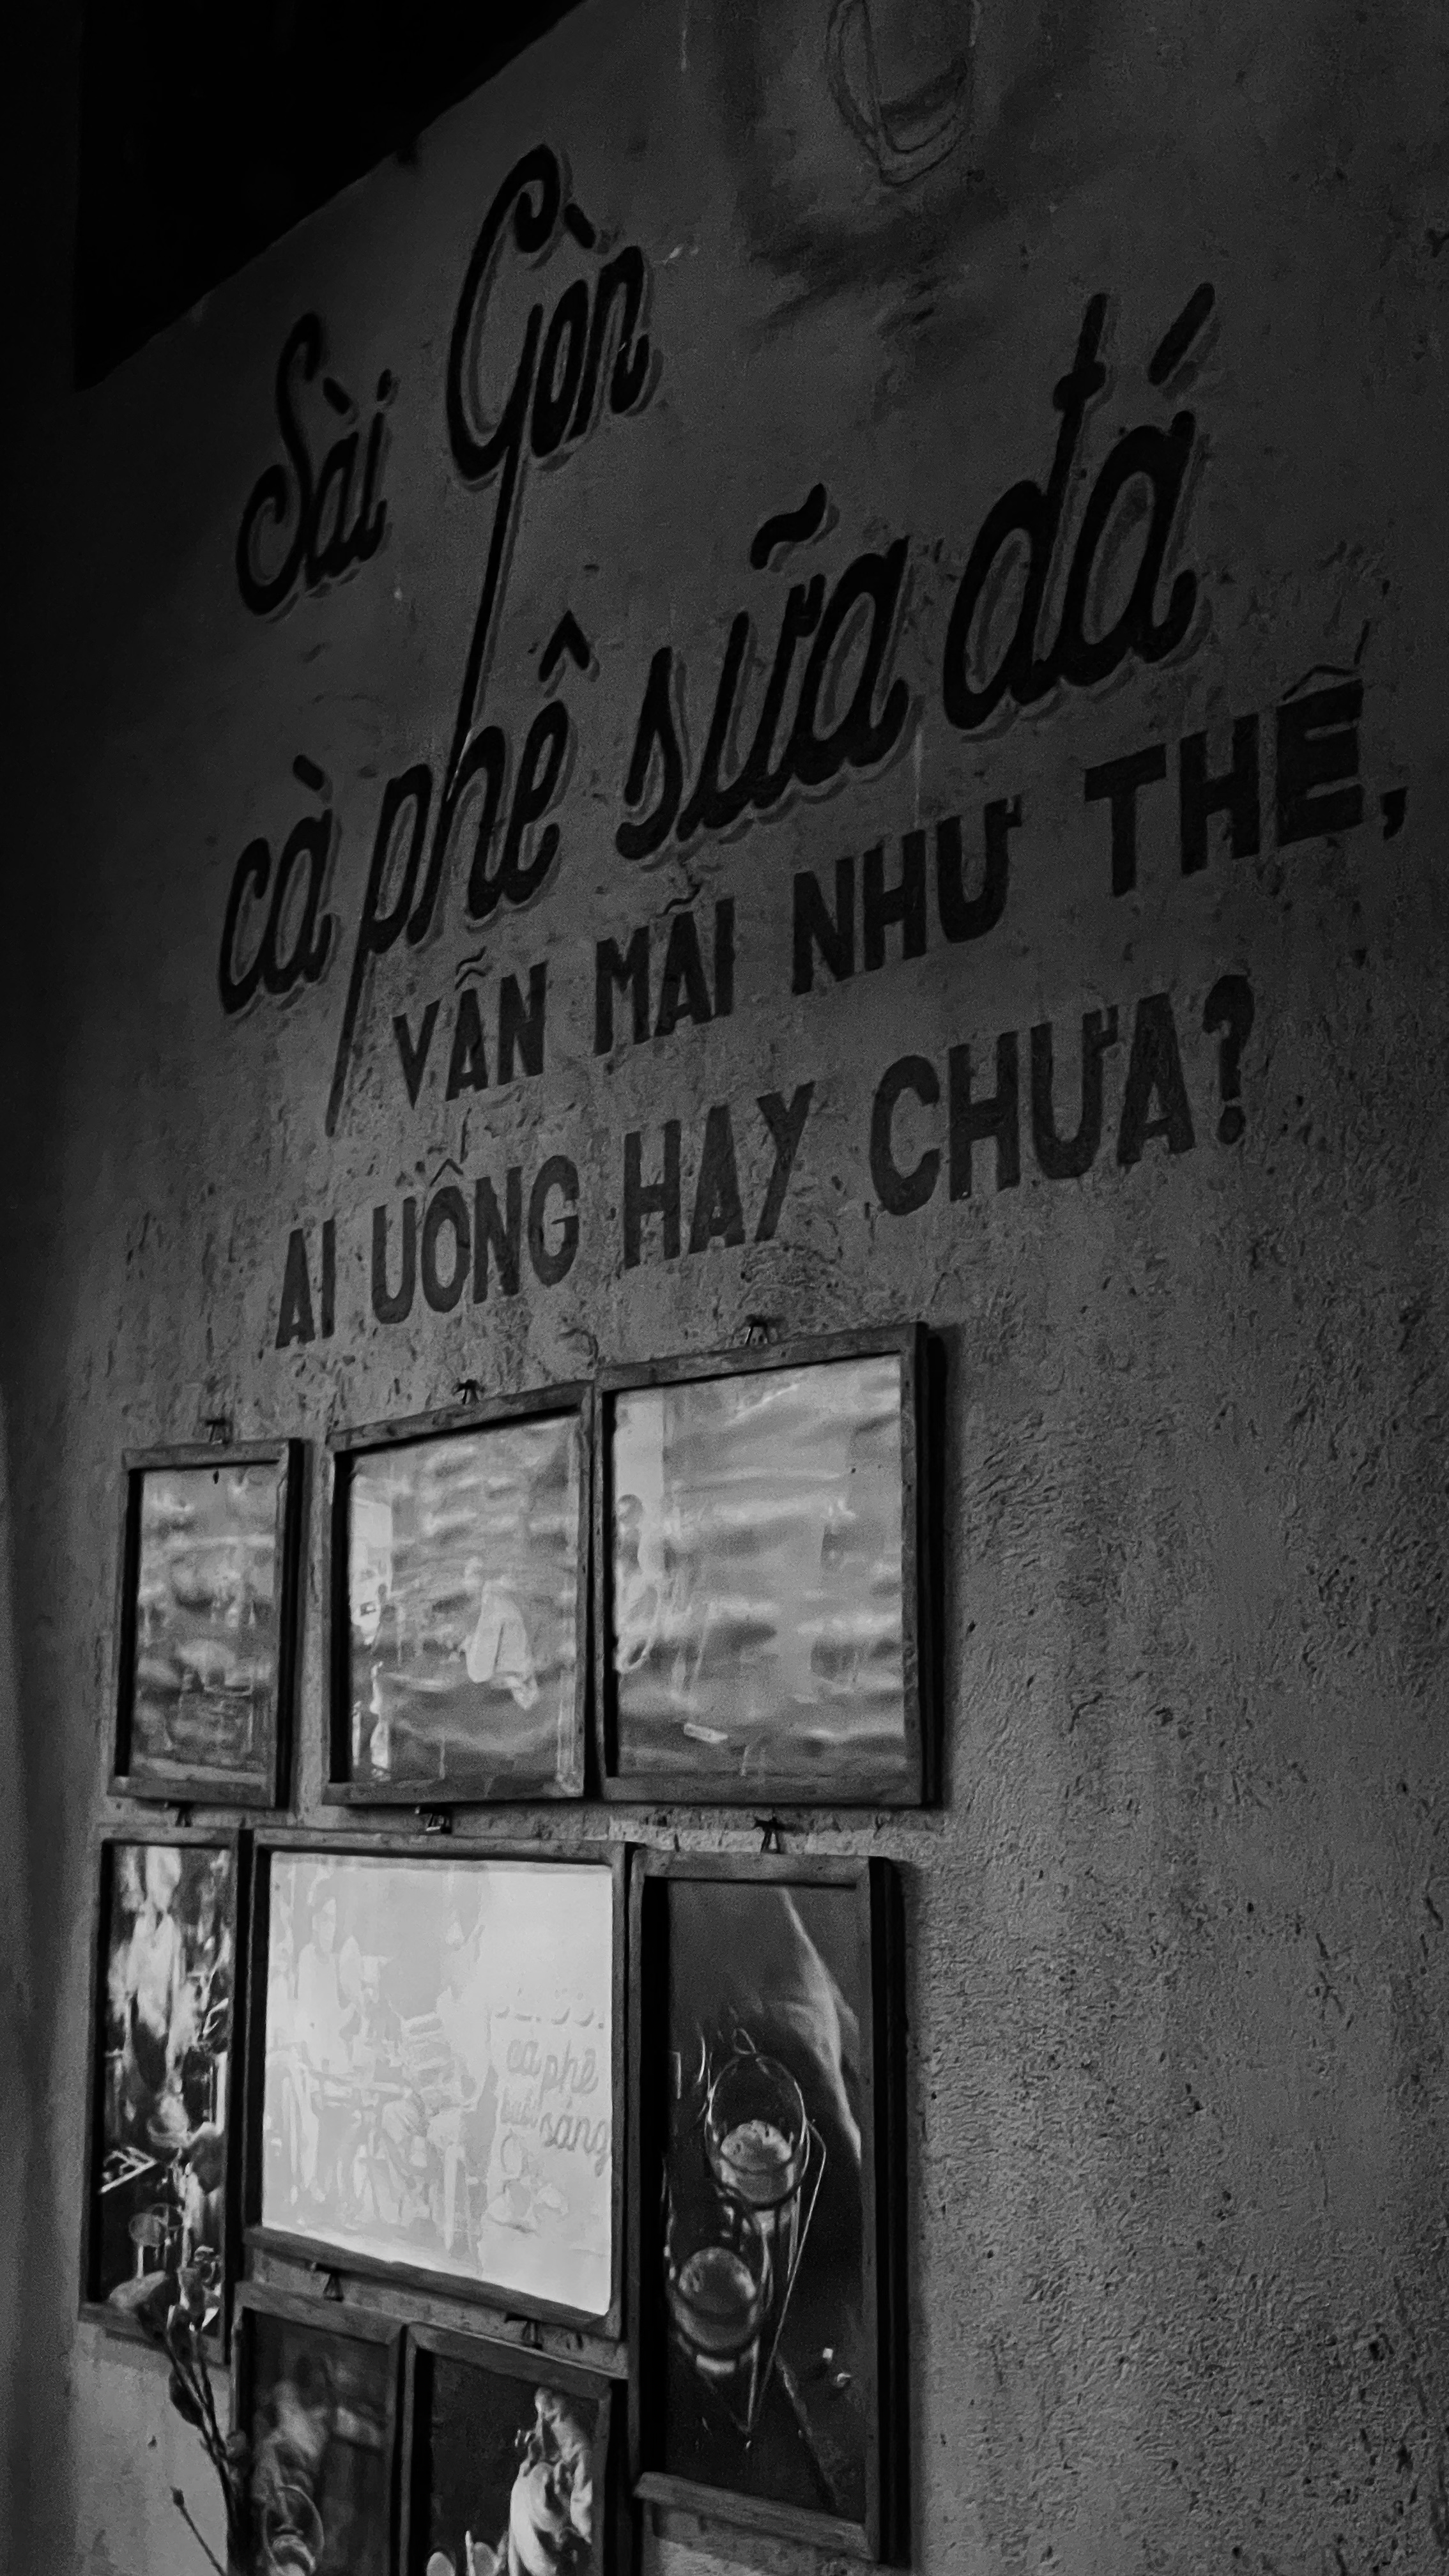 Sài Gòn
cà phê sữa đá
VẪN MÃI NHƯ THẾ,
AI UỐNG HAY CHƯA?
cà phê
sáng